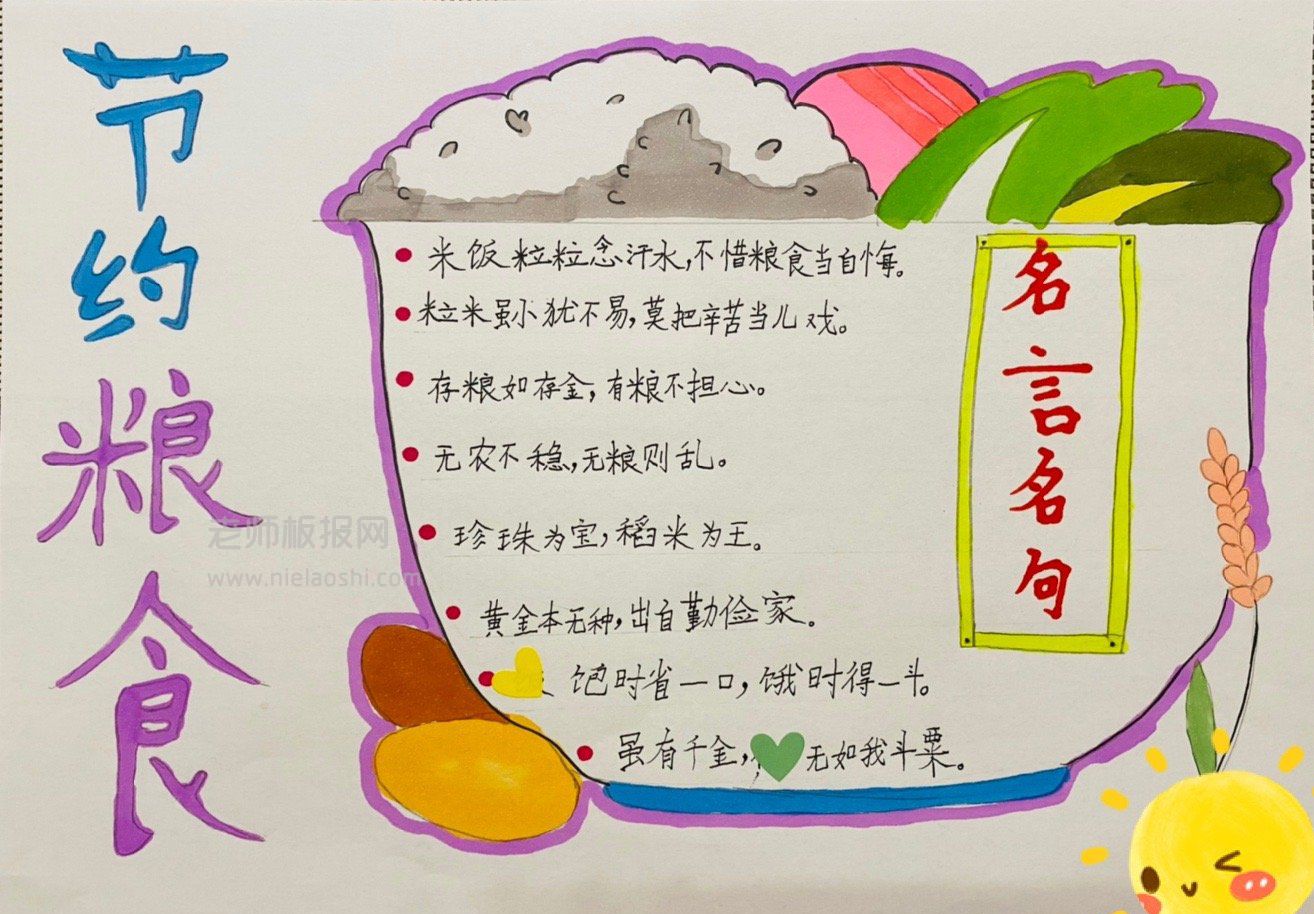 节约粮食
名言名句
米饭粒粒念汗水,不惜粮食当自悔。
粒米虽小犹不易,莫把辛苦当儿戏。
存粮如存金,有粮不担心。
无农不稳,无粮则乱。
珍珠为宝,稻米为王。
黄金本无种,出自勤俭家。
饱时省一口,饿时得一斗。
虽有千金,无如我斗粟。
老师板报网
www.nielaoshi.com